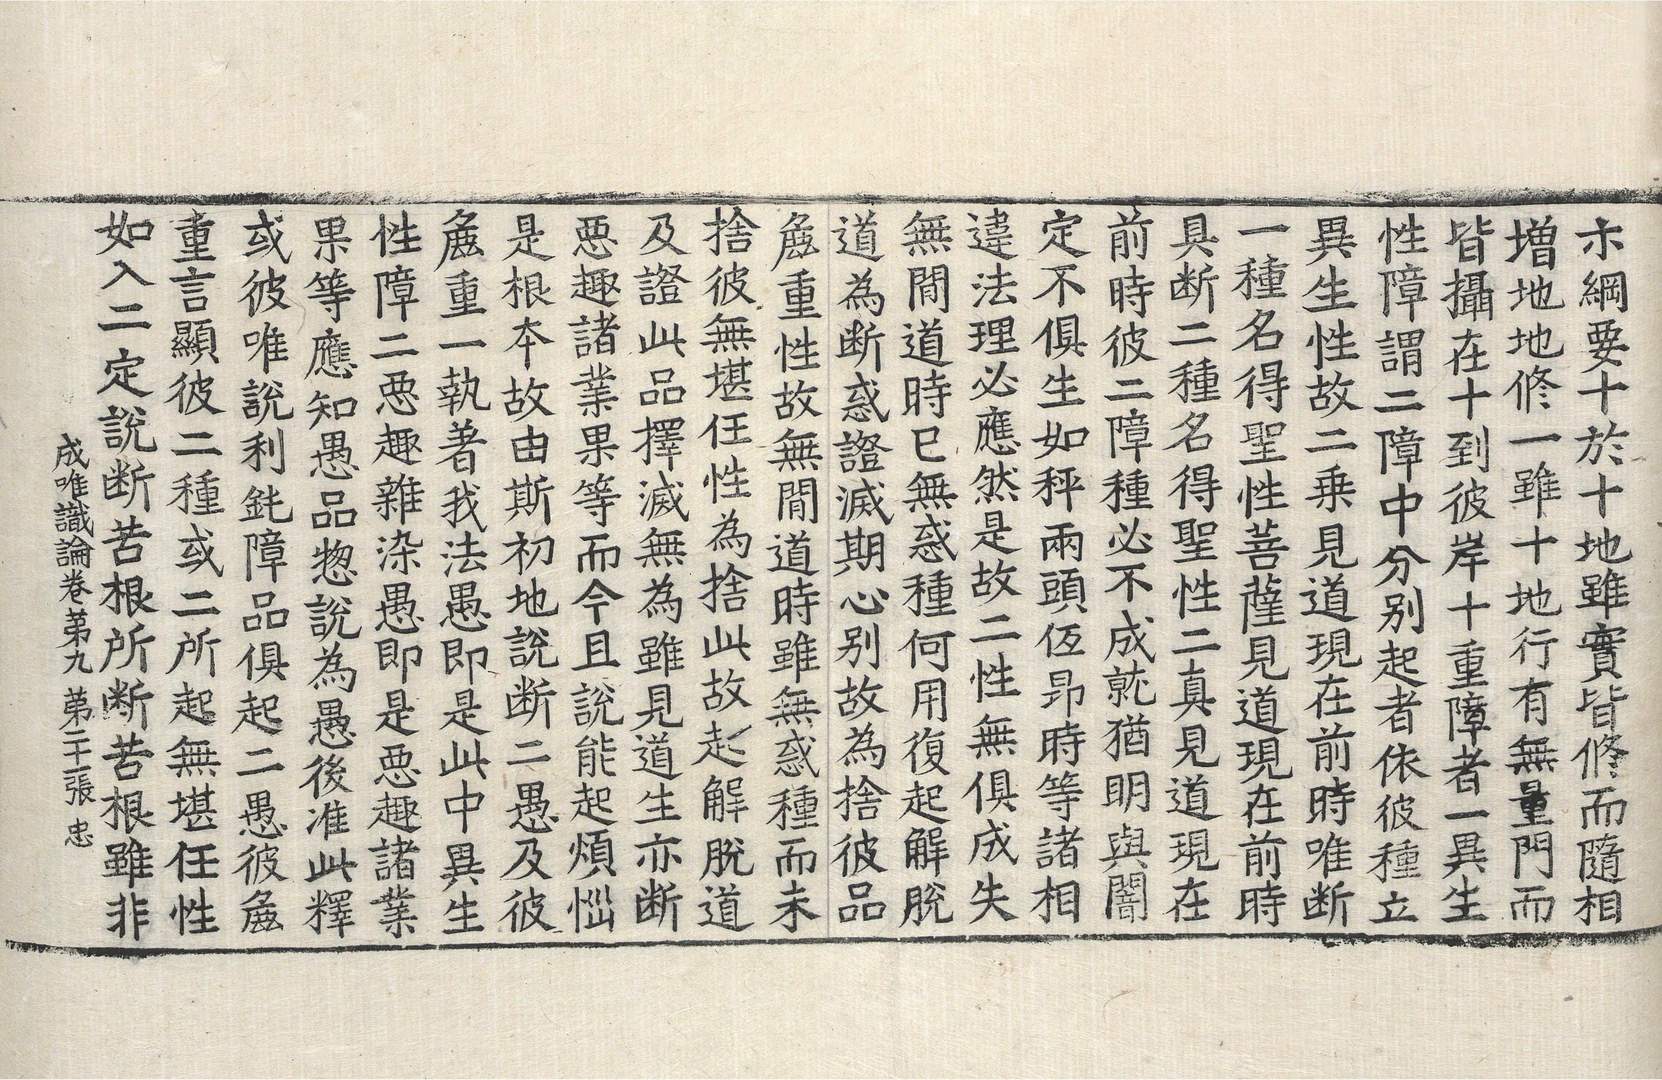 示綱要十於十地雖實皆修而隨相
增地地修一雖十地行有無量門而
皆攝在十到彼岸十重障者一異生
性障謂二障中分別起者依彼種立
異生性故二乗見道現在前時唯断
一種名得聖性菩薩見道現在前時
具断二種名得聖性二真見道現在
前時彼二障種必不成就猶明與闇
定不俱生如秤兩頭仾昂時等諸相
違法理必應然是故二性無俱成失
無閒道時已無惑種何用復起解脫
道為断惑證滅期心别故為捨彼品
麁重性故無閒道時雖無惑種而未
捨彼無堪任性為捨此故起解脫道
及證此品擇滅無為雖見道生亦断
惡趣諸業果等而今且說能起煩惱
是根本故由斯初地說断二愚及彼
麁重一執著我法愚即是此中異生
性障二惡趣雜染愚即是惡趣諸業
果等應知愚品惣說為愚後准此釋
或彼唯說利鈍障品俱起二愚彼麁
重言顯彼二種或二所起無堪任性
如入二定說断苦根所断苦根雖非
成唯識論卷第九 苐二十一張 忠